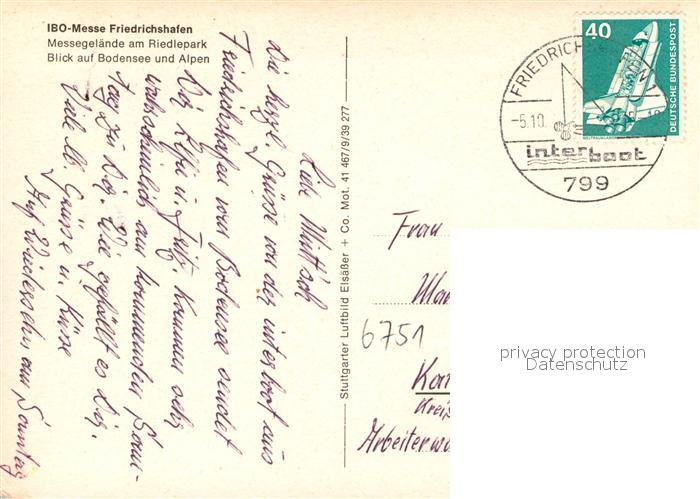 IBO-Messe Friedrichshafen
Messegelände am Riedlepark
Blick auf Bodensee und Alpen
Liebe
Die herzl. Grüsse von der interboot aus
Friedrichshafen vom Bodensee sendet
Dir Elfi u. Fritz. Kommen sehr
wahrscheinlich am kommenden Sonn-
tag zu Dir. Wie gefällt es Dir.
Viele lb. Grüsse u. Küsse
Auf Wiedersehn am Sonntag
Stuttgarter Luftbild Elsäßer + Co. Mot. 41 467/9/39 277
40
DEUTSCHE BUNDESPOST
FRIEDRICHS
-5.10.
interboot
799
Frau
6751
Kreis
privacy protection
Datenschutz